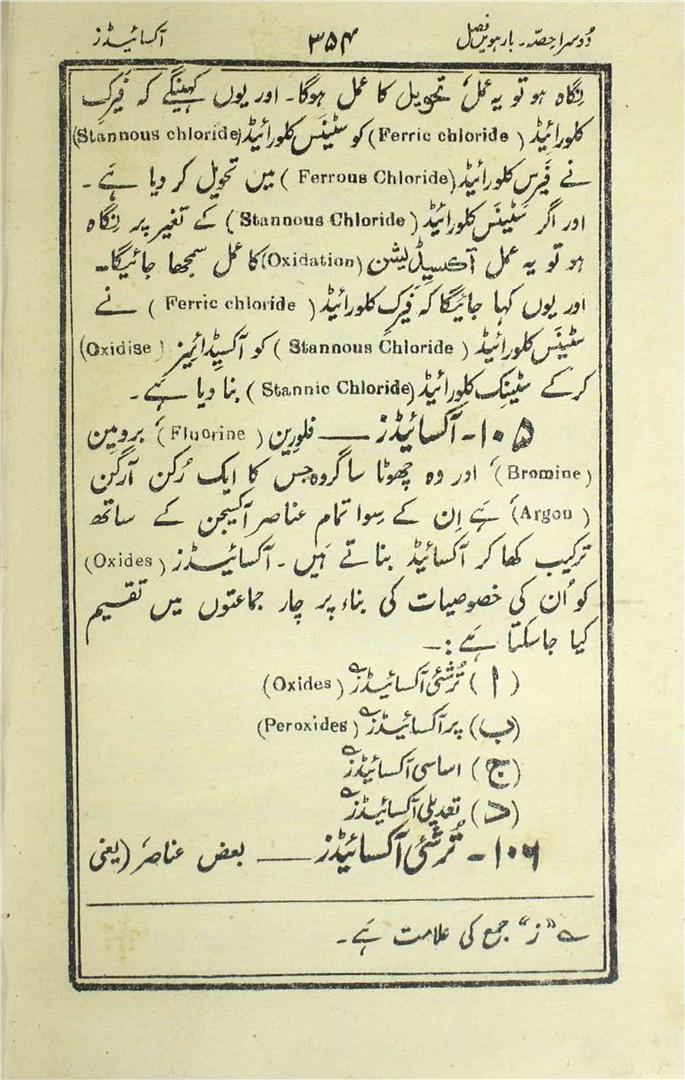 دوسرا حصّہ۔ بارھویں فصل ۳۵۴ آکسائیڈز
نِگاہ ہو تو یہ عمل' تحویل کا عمل ہوگا۔ اور یوں کہینگے کہ فَیرِک
کلورائیڈ (Ferric chloride) کو سٹینَس کلورائیڈ (Stannous chloride)
نے فَیرَس کلورائیڈ (Ferrous Chloride) میں تحویل کر دیا ہَے۔
اور اگر سٹینَس کلورائیڈ (Stannous Chloride) کے تغیر پر نِگاہ
ہو تو یہ عمل آکسیڈیشن (Oxidation) کا عمل سمجھا جائیگا۔
اور یوں کہا جائیگا کہ فَیرِک کلورائیڈ (Ferric chloride) نے
سٹینَس کلورائیڈ (Stannous Chloride) کو آکسِیڈائیز (Oxidise)
کرکے سٹینِک کلورائیڈ (Stannic Chloride) بنا دیا ہَے۔
۱۰۵۔ آکسائیڈز —— فلورِین (Fluorine)' برومین
(Bromine)' اور وہ چھوٹا سا گروہ جس کا ایک رُکن آرگن
(Argon)' ہَے اِن کے سِوا تمام عناصر آکسیجن کے ساتھ
ترکیب کھا کر آکسائیڈ بناتے ہَیں۔ آکسائیڈز (Oxides)
کو اُن کی خصوصیات کی بناء پر چار جماعتوں میں تقسیم
کیا جاسکتا ہَے :۔
(ا) تُرشئی آکسائیڈزؔ (Oxides)
(ب) پر آکسائیڈزؔ (Peroxides)
(ج) اساسی آکسائیڈزؔ
(د) تعدیلی آکسائیڈزؔ
۱۰۶۔ تُرشئی آکسائیڈز —— بعض عناصر (یعنی
؎ "ز" جمع کی علامت ہَے۔